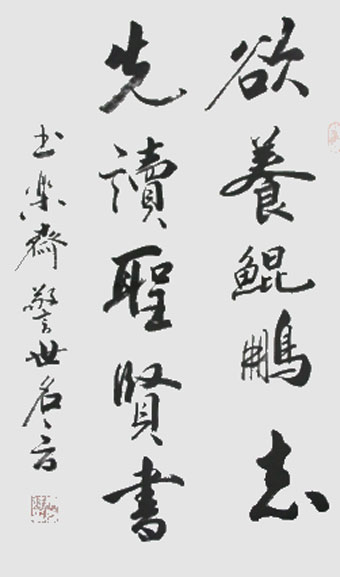 欲養鯤鵬志
先讀聖賢書
玉樂齋警世名言